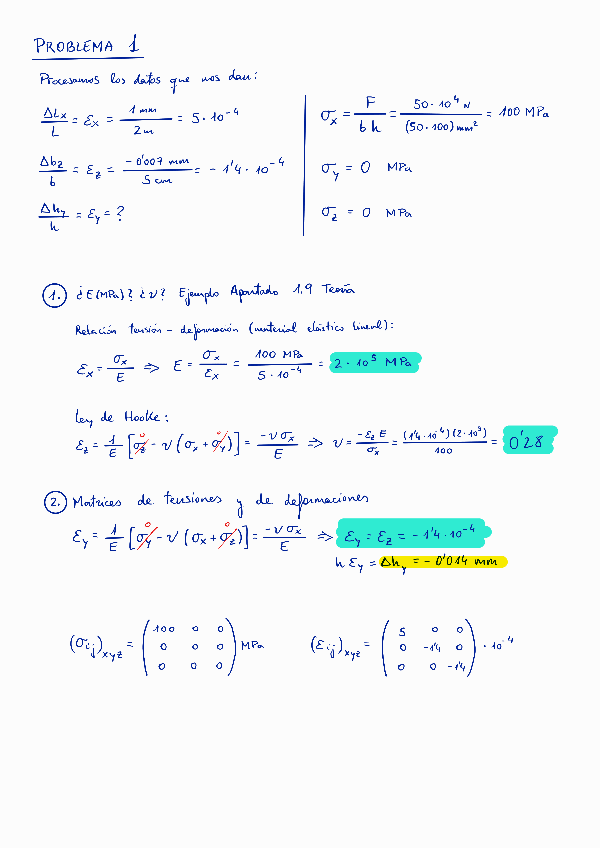 PROBLEMA 1
Procesamos los datos que nos dan:
ΔLx/L = εx = 1 mm/2 m = 5·10⁻⁴
Δbz/b = εz = -0'007 mm/5 cm = -1'4·10⁻⁴
Δhy/h = εy = ?
σx = F/(b h) = 50·10⁴ N/((50·100) mm²) = 100 MPa
σy = 0 MPa
σz = 0 MPa
1. ¿E(MPa)? ¿ν? Ejemplo Apartado 1.9 Teoría
Relación tensión - deformación (material elástico lineal):
εx = σx/E ⇒ E = σx/εx = 100 MPa/(5·10⁻⁴) = 2·10⁵ MPa
Ley de Hooke:
εz = 1/E [σz - ν(σx + σy)] = -νσx/E ⇒ ν = -εz E/σx = (1'4·10⁻⁴)(2·10⁵)/100 = 0'28
2. Matrices de tensiones y de deformaciones
εy = 1/E [σy - ν(σx + σz)] = -νσx/E ⇒ εy = εz = -1'4·10⁻⁴
h εy = Δhy = -0'014 mm
(σij)xyz = (100 0 0; 0 0 0; 0 0 0) MPa
(εij)xyz = (5 0 0; 0 -1'4 0; 0 0 -1'4)·10⁻⁴